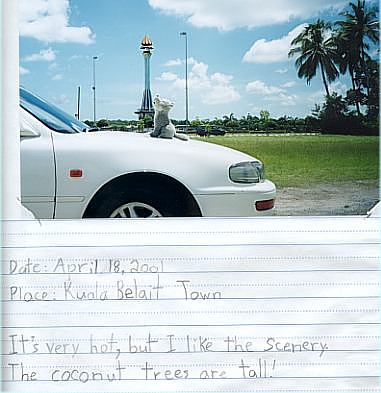 Date: April 18, 2001
Place: Kuala Belait Town
It's very hot, but I like the scenery.
The coconut trees are tall!